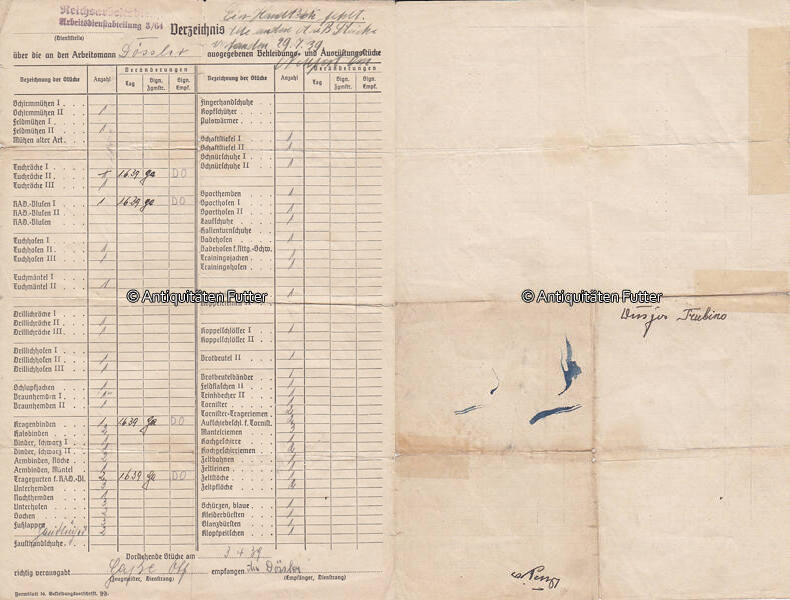 Reichsarbeitsdienst
Arbeitsdienstabteilung 3/64
(Dienststelle)
Verzeichnis
Ein Handtuch fehlt.
29.7.39
über die an den Arbeitsmann Dössler ausgegebenen Bekleidungs- und Ausrüstungsstücke
Bezeichnung der Stücke Anzahl Veränderungen Tag Sign. Zgmstr. Sign. Empf.
Schirmmützen I
Schirmmützen II 1
Feldmützen I
Feldmützen II 1
Mützen alter Art
Tuchröcke I
Tuchröcke II 1 1639 DO
Tuchröcke III 1
RAD.-Blusen I 1 16.39 DO
RAD.-Blusen II
RAD.-Blusen
Tuchhosen I
Tuchhosen II 1
Tuchhosen III 1
Tuchmäntel I
Tuchmäntel II 1
Drillichröcke I
Drillichröcke II 1
Drillichröcke III 1
Drillichhosen I
Drillichhosen II 1
Drillichhosen III 1
Schlupfjacken 1
Braunhemden I 1
Braunhemden II 1
Kragenbinden 1639 DO
Halsbinden
Binder, schwarz I
Binder, schwarz II
Armbinden, Röcke
Armbinden, Mäntel
Tragegurten f. RAD.-Bl. 1639 DO
Unterhemden
Nachthemden
Unterhosen
Socken
Fußlappen
Fausthandschuhe
Bezeichnung der Stücke Anzahl Veränderungen Tag Sign. Zgmstr. Sign. Empf.
Fingerhandschuhe
Kopfschützer
Pulswärmer
Schaftstiefel I 1
Schaftstiefel II 1
Schnürschuhe I
Schnürschuhe II 1
Sporthemden 1
Sporthosen I
Sporthosen II 1
Laufschuhe 1
Hallenturnschuhe
Badehosen 1
Badehosen f. Rttg.-Schw.
Trainingsjacken 1
Trainingshosen 1
Koppelriemen II
Koppelschlösser I 1
Koppelschlösser II
Brotbeutel II 1
Brotbeutelbänder 1
Feldflaschen II 1
Trinkbecher II 1
Tornister 1
Tornister-Trageriemen 2
Aufschiebeschl. f. Tornist.
Mantelriemen 3
Kochgeschirre 1
Kochgeschirriemen
Zeltbahnen 1
Zeltleinen 1
Zeltstöcke 1
Zeltpflöcke 2
Schürzen, blaue 1
Kleiderbürsten 1
Glanzbürsten 1
Klopfpeitschen 1
Vorstehende Stücke am 3.4.39
richtig verausgabt empfangen Dössler
(Zeugmeister, Dienstrang) (Empfänger, Dienstrang)
Formblatt 16. Bekleidungsvorschrift.
© Antiquitäten Futter © Antiquitäten Futter